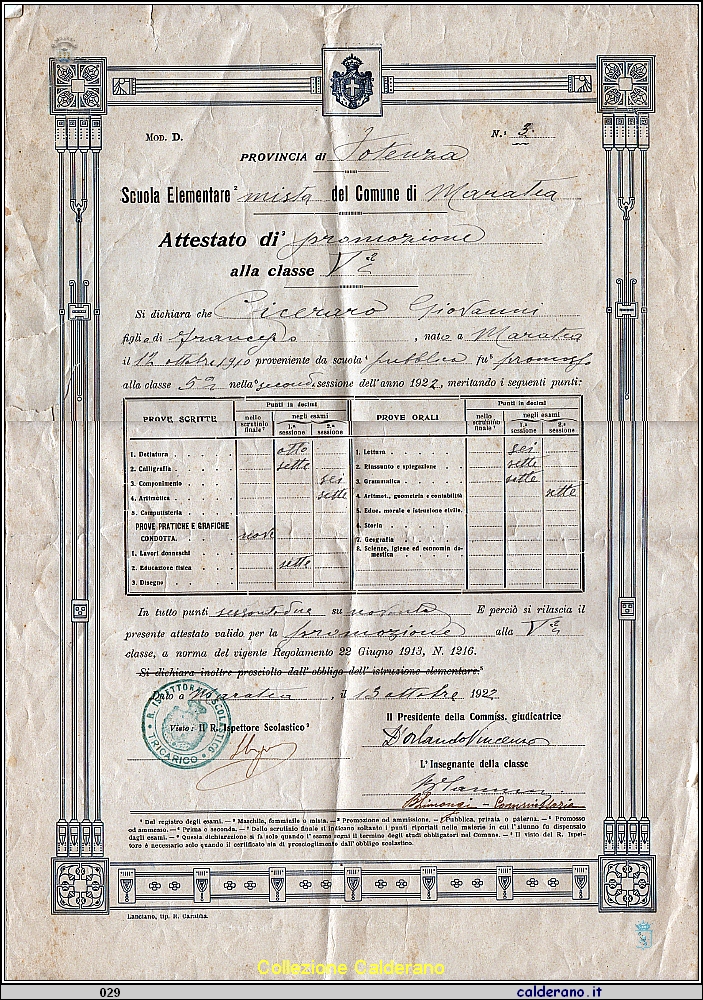 Mod. D.
N.° 3.
PROVINCIA di Potenza
Scuola Elementare² mista del Comune di Maratea
Attestato di³ promozione
alla classe Vª
Si dichiara che Ciceraro Giovanni
figlio di Francesco, nato a Maratea
il 12 ottobre 1910 proveniente da scuola⁴ pubblica fu⁵ promosso
alla classe 5ª nella⁶ seconda sessione dell'anno 1922, meritando i seguenti punti:
PROVE SCRITTE
Punti in decimi
nello scrutinio finale⁷
negli esami
1.ª sessione
2.ª sessione
PROVE ORALI
Punti in decimi
nello scrutinio finale⁷
negli esami
1.ª sessione
2.ª sessione
1. Dettatura . . . . . otto
2. Calligrafia . . . . . sette
3. Componimento . . . . sei
4. Aritmetica . . . . . sette
5. Computisteria . . . .
PROVE PRATICHE E GRAFICHE
CONDOTTA. nove
1. Lavori donneschi . . .
2. Educazione fisica . . . sette
3. Disegno . . . . . .
1. Lettura . . . . . . sei
2. Riassunto e spiegazione . . sette
3. Grammatica . . . . . sette
4. Aritmet., geometria e contabilità sette
5. Educ. morale e istruzione civile.
6. Storia . . . . . .
7. Geografia . . . . .
8. Scienze, igiene ed economia domestica
In tutto punti sessantadue su novanta E perciò si rilascia il
presente attestato valido per la promozione alla Vª
classe, a norma del vigente Regolamento 22 Giugno 1913, N. 1216.
Si dichiara inoltre prosciolto dall'obbligo dell'istruzione elementare.⁸
Dato a Maratea, il 13 ottobre 1922
R. ISPETTORATO SCOLASTICO
TRICARICO
Visto: Il R. Ispettore Scolastico⁹
Il Presidente della Commiss. giudicatrice
D'Orlando Vincenzo
L'Insegnante della classe
Commissaria
¹ Dal registro degli esami. — ² Maschile, femminile o mista. — ³ Promozione od ammissione. — ⁴ Pubblica, privata o paterna. — ⁵ Promosso
od ammesso. — ⁶ Prima o seconda. — ⁷ Dello scrutinio finale si indicano soltanto i punti riportati nelle materie in cui l'alunno fu dispensato
dagli esami. — ⁸ Questa dichiarazione si fa solo quando l'esame segni il termine degli studi obbligatori nel Comune. — ⁹ Il visto del R. Ispettore
è necessario solo quando il certificato sia di proscioglimento dall'obbligo scolastico.
Lanciano, tip. R. Carabba.
Collezione Calderano
029
calderano.it